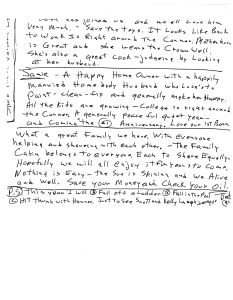 has joined us and we all Love him
Very Much, - Save the toys. It Looks Like Back
to Work Is Right around The Corner. Motherhood
is Great and she wears the Crown Well.
She's also a great cook - judging by Looking
at her husband.
- A Happy Home Owner with a happily
Married Home body Husband who Loves to
Paint - Clean - Fix and generally make her Happy.
All the Kids are growing - College is right around
the Corner. A generally peaceful quiet year -
and Coming The Anniversary. Love our 1st Born
What a great Family we have. With everyone
helping and sharing with each other. - The Family
Cabin belongs to everyone. Each to Share Equally.
Hopefully we will all enjoy it for years to come.
Nothing is Easy - The Sun is Shining and We Alive
and Well. Save your Money and Check Your Oil.
P.S. This year I will Fall off a Ladder Fall in the
Hit thumb with Hammer. Just to See Scott and Kelly